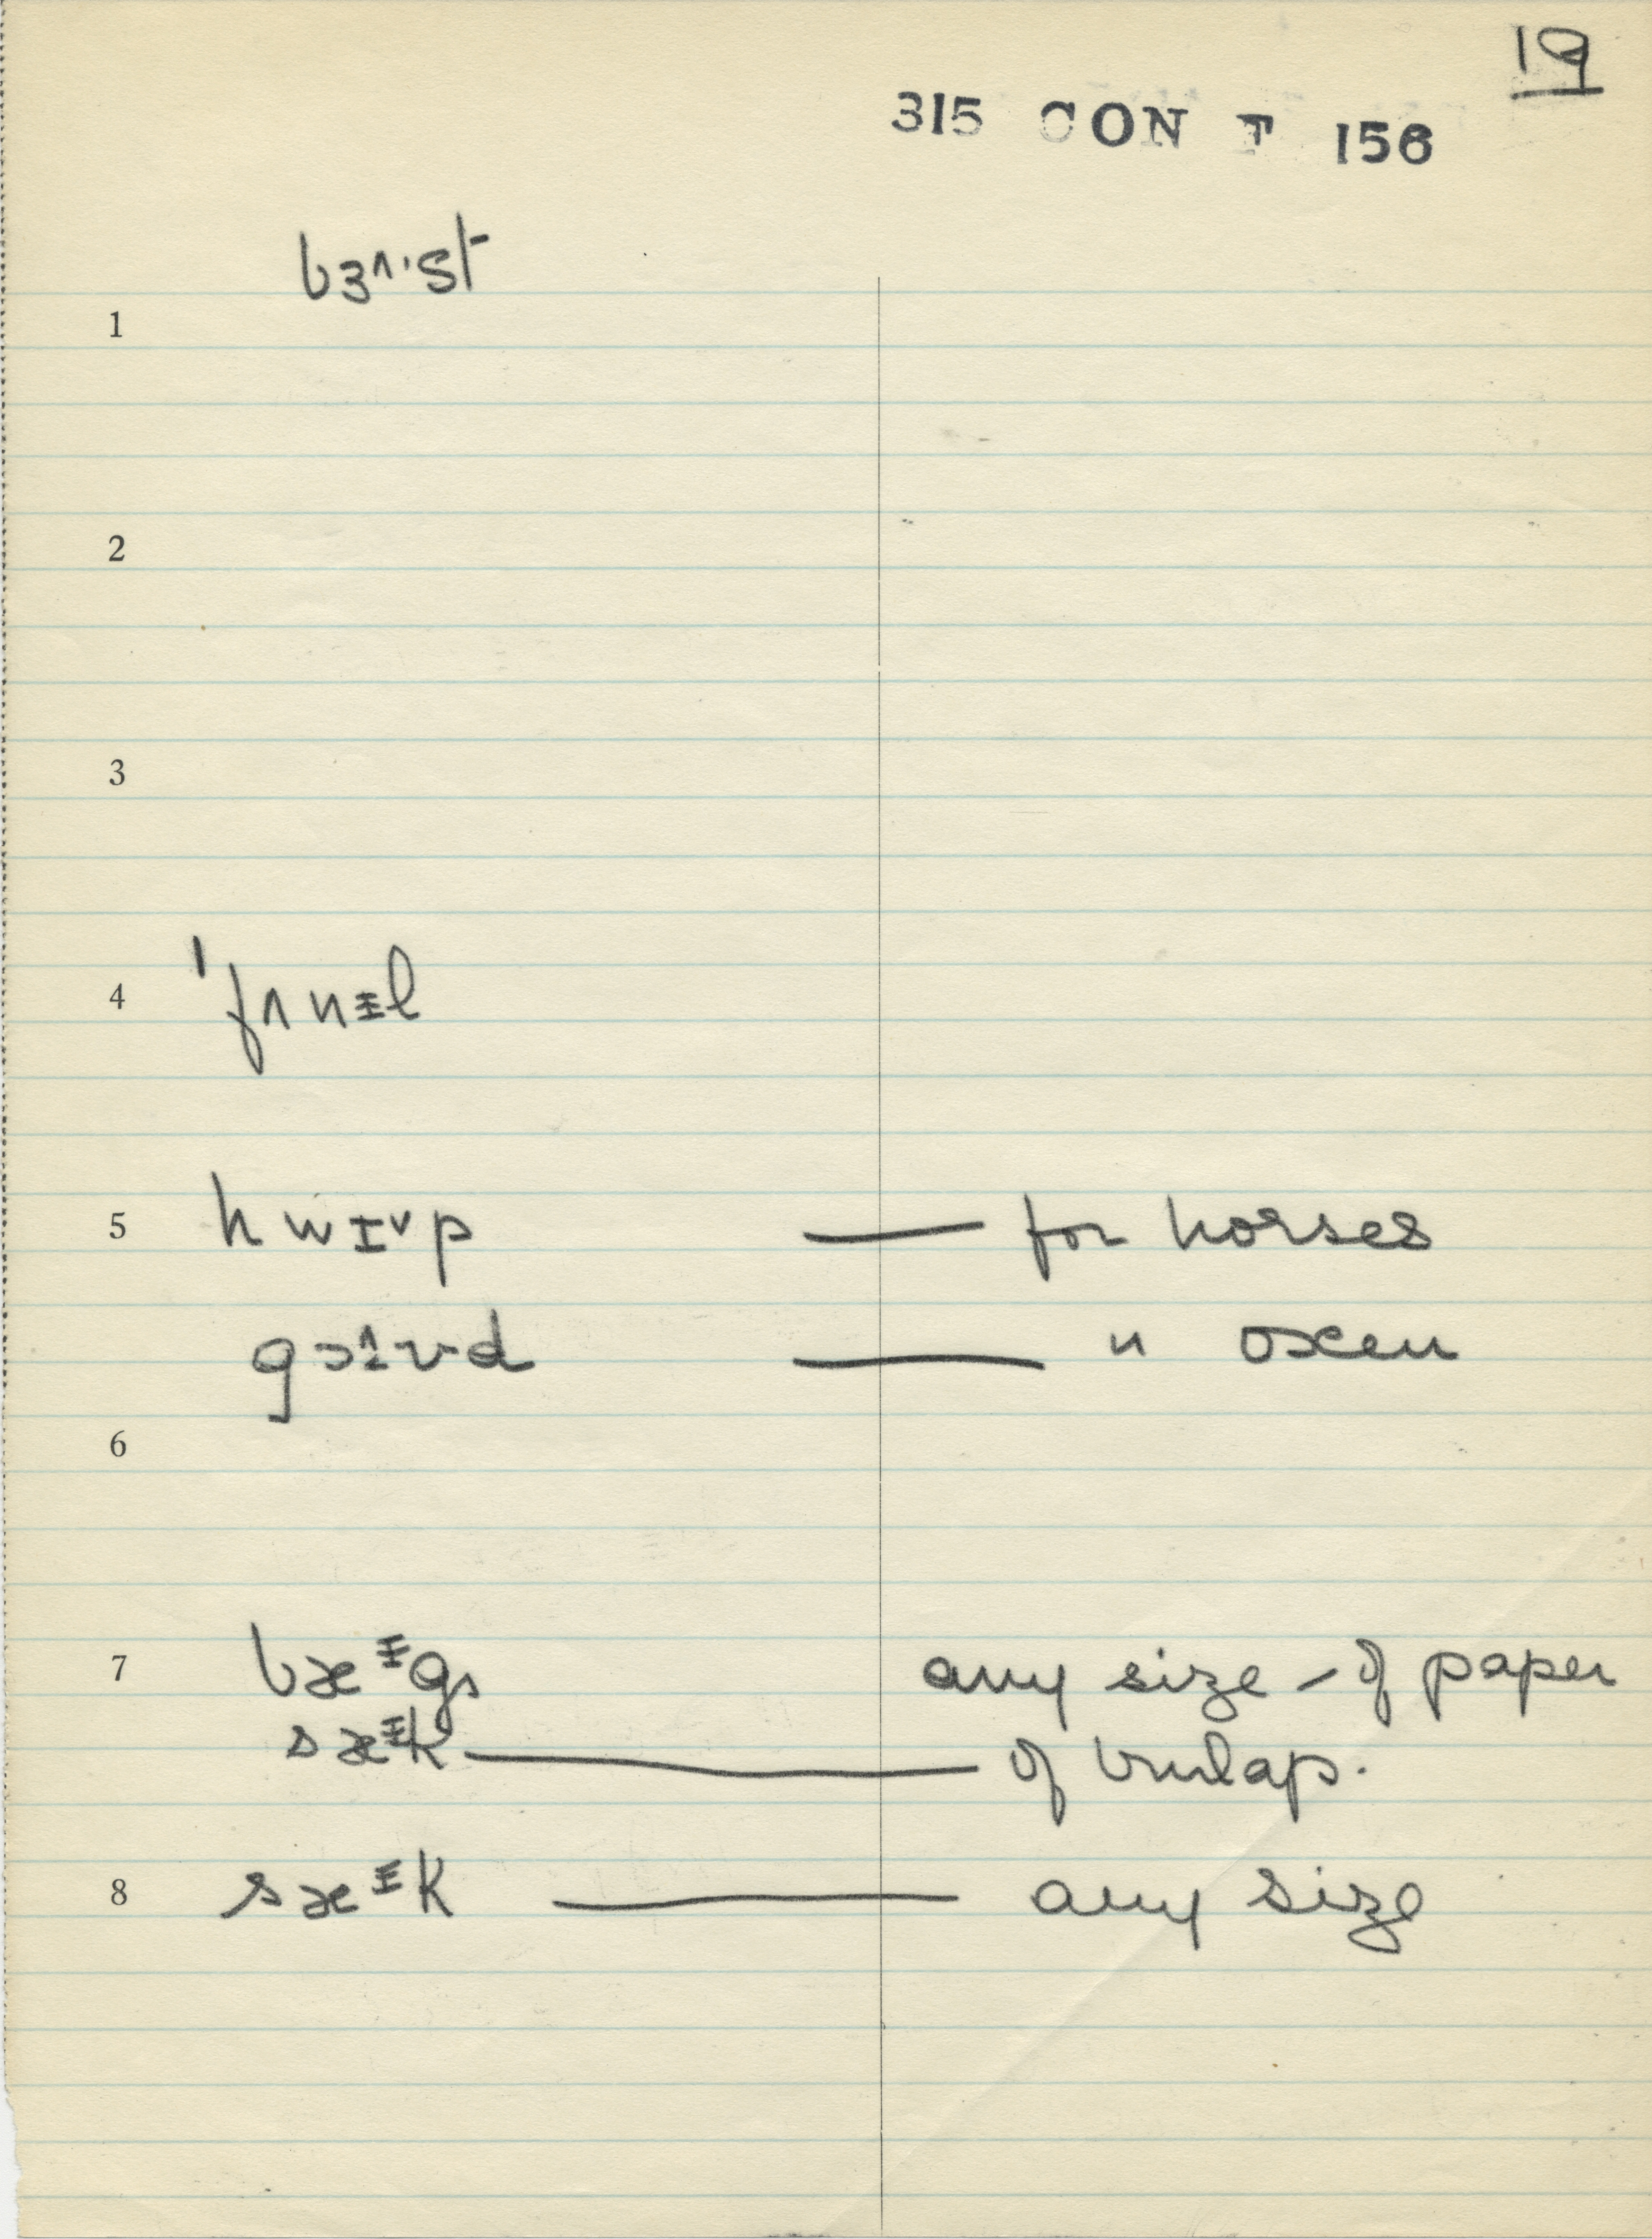 19
315 CON F 156
bɜʌ·st
1
2
3
4 'fʌnɨl
5 hwɪᵛp — for horses
gɔɪvd — " oxen
6
7 bæᵻgs any size - of paper
sæᵻk — of burlap.
8 sæᵻk — any size